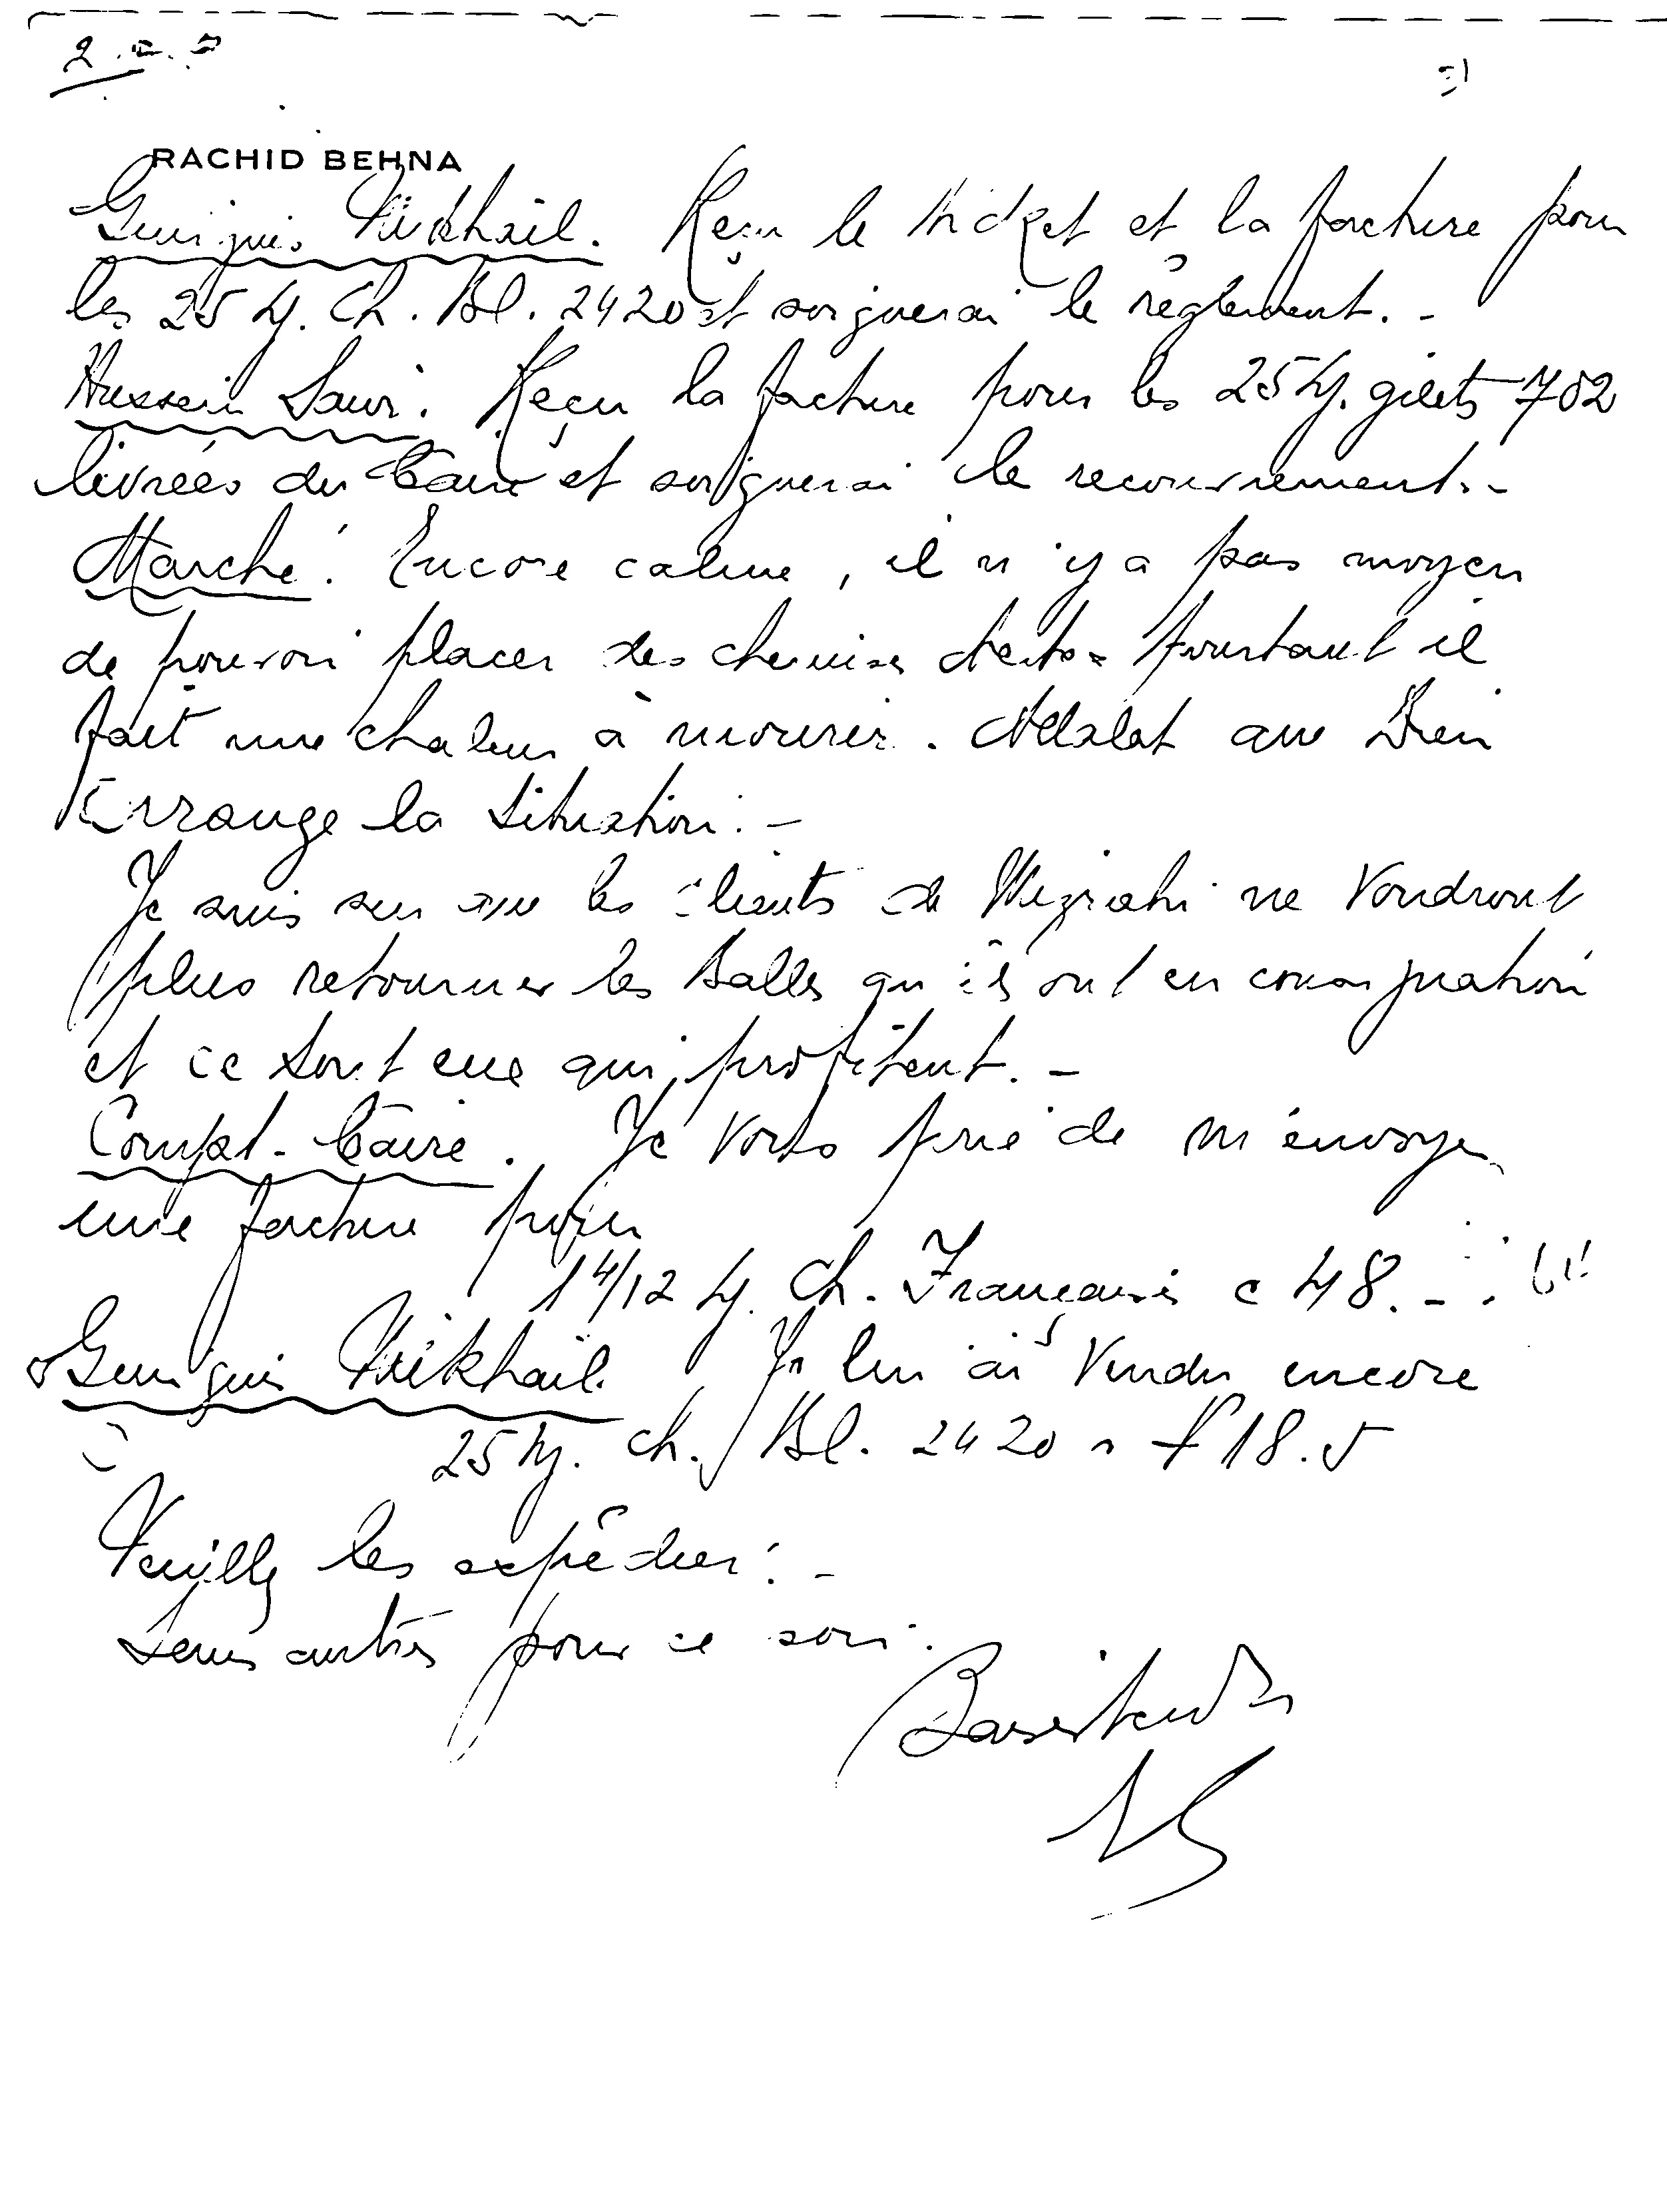 RACHID BEHNA
Guirguis Mikhail. Reçu le ticket et la facture pour
les 25 Ch. Bl. 2420 et soignerai le règlement. -
Hussein Reçu la facture pour les 25 gilets 702
livrées du Caire et soignerai le recouvrement. -
Marché. Encore calme, il n'y a pas moyen
de pouvoir placer des chemises pourtant il
fait une chaleur à mourir. que Dieu
arrange la situation. -
Je suis sur que les clients de Mizrahi ne voudront
plus retourner les Balles qu'ils ont en consignation
et ce sont eux qui profitent. -
Compt-Caire. Je vous prie de m'envoyer
une facture pour
14/12 Ch. Françaises à 48. -
Guirguis Mikhail. Je lui ai vendu encore
25 Ch. Bl. 2420 à £ 18.5
Veuillez les expédier. -
Sans autres pour ce soir.